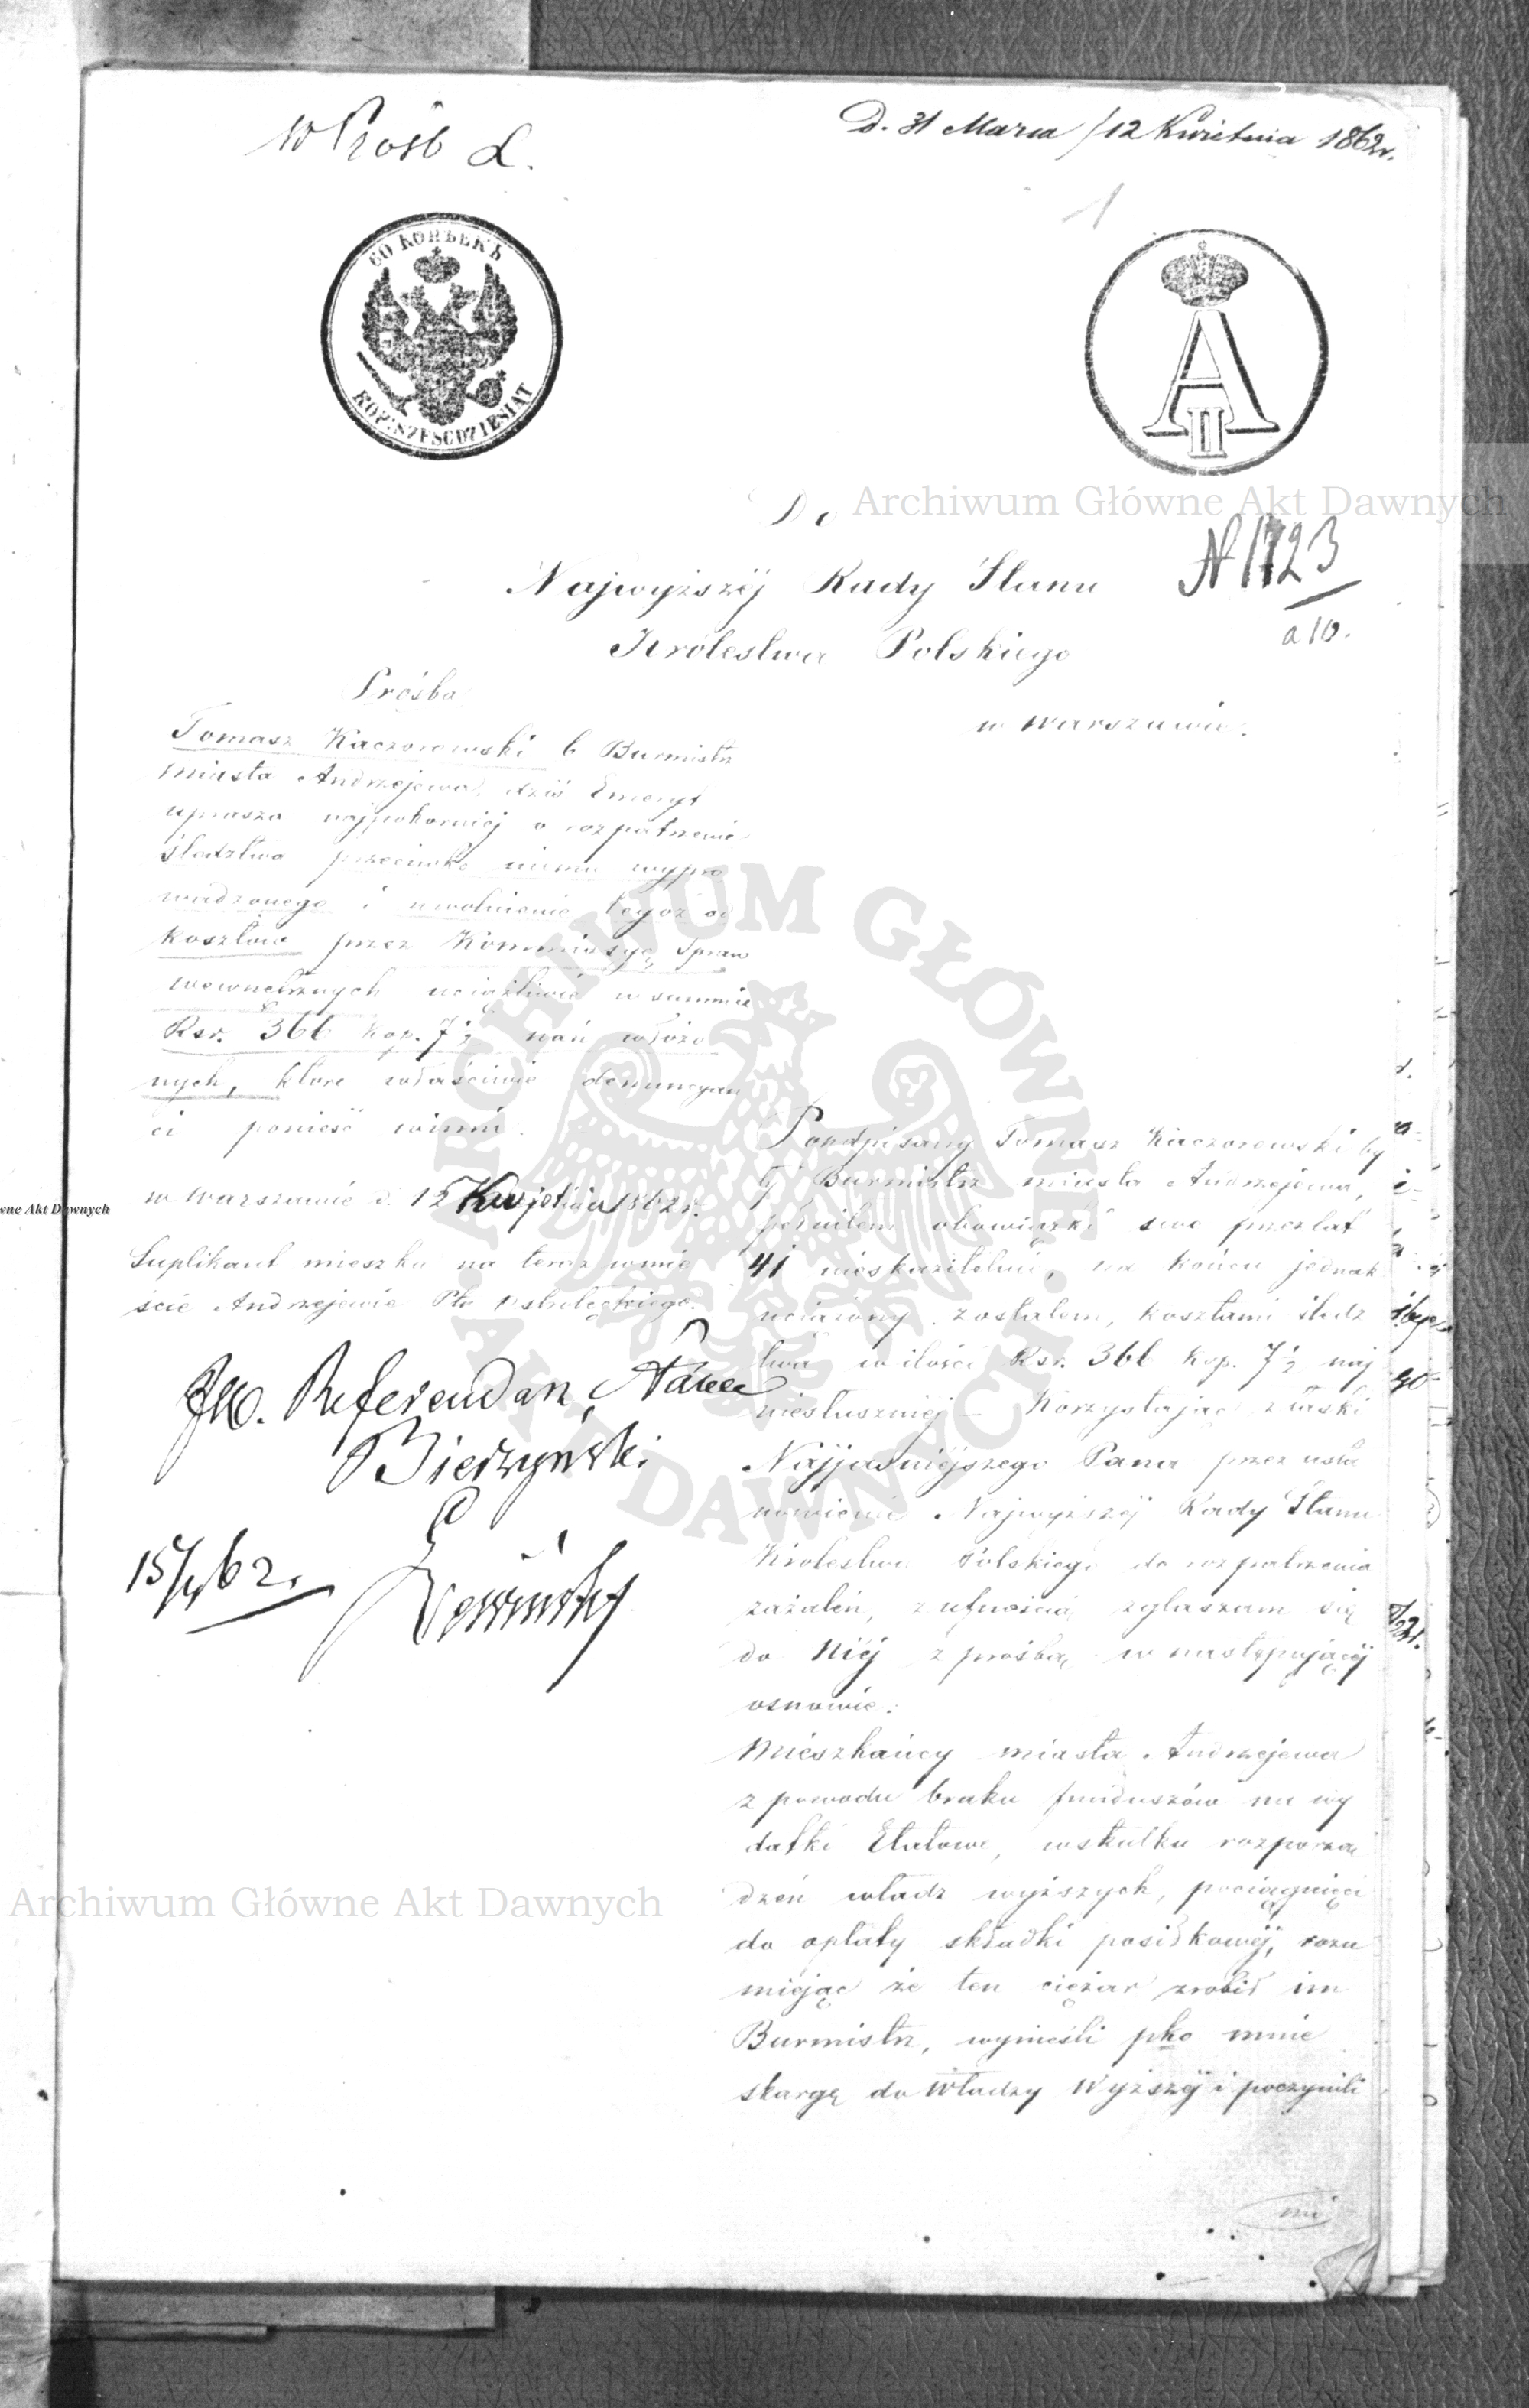 w Prośb
D. 31 Marca / 12 Kwietnia 1862 r.
1
60 КОПѢЕКЪ
KOP: SZEŚĆDZIESIĄT
A II
Archiwum Główne Akt Dawnych
Do
N 1723
a 10.
Najwyższéj Rady Stanu
Królestwa Polskiego
w Warszawie.
Prośba
Tomasz Kaczorowski b Burmistrz
miasta Andrzejewa, dziś Emeryt
uprasza najpokorniéj o rozpatrzenie
śledztwa przeciwko niemu wypro
wadzonego i uwolnienie tegoż od
kosztów przez Kommissyę Spraw
wewnętrznych uciążliwie w summie
Rsr. 366 kop. 7½ nań włożo
nych, które właściwie denuncyan
ci ponieść winni.
w Warszawie d. 12 Kwietnia 1862 r.
Suplikant mieszka na teraz w mie
ście Andrzejewie Ptu Ostrołęckiego.
JW. Referendarz Stanu
Bierzyński
15/4 62.
Podpisany Tomasz Kaczorowski by
ły Burmistrz miasta Andrzejewa,
pełniłem obowiązki swe przez lat
41 nieskazitelnie, na końcu jednak
uciążony zostałem, kosztami śledz
twa w ilości Rsr. 366 kop. 7½ naj
niesłuszniéj – Korzystając z łaski
Najjaśniéjszego Pana przez usta
nowienie Najwyższéj Rady Stanu
Królestwa Polskiego do rozpatrzenia
zażaleń, z ufnością zgłaszam się
do Niéj z prośbą w następującéj
osnowie:
Mieszkańcy miasta Andrzejewa
z powodu braku funduszów na wy
datki Etatowe, wskutku rozporzą
dzeń władz wyższych, pociągnięci
do opłaty składki posiłkowéj, rozu
miejąc że ten ciężar zrobił im
Burmistrz, wynieśli pko mnie
skargę do Władzy Wyższéj i poczynili
mi
Archiwum Główne Akt Dawnych
wne Akt Dawnych
ARCHIWUM GŁÓWNE AKT DAWNYCH